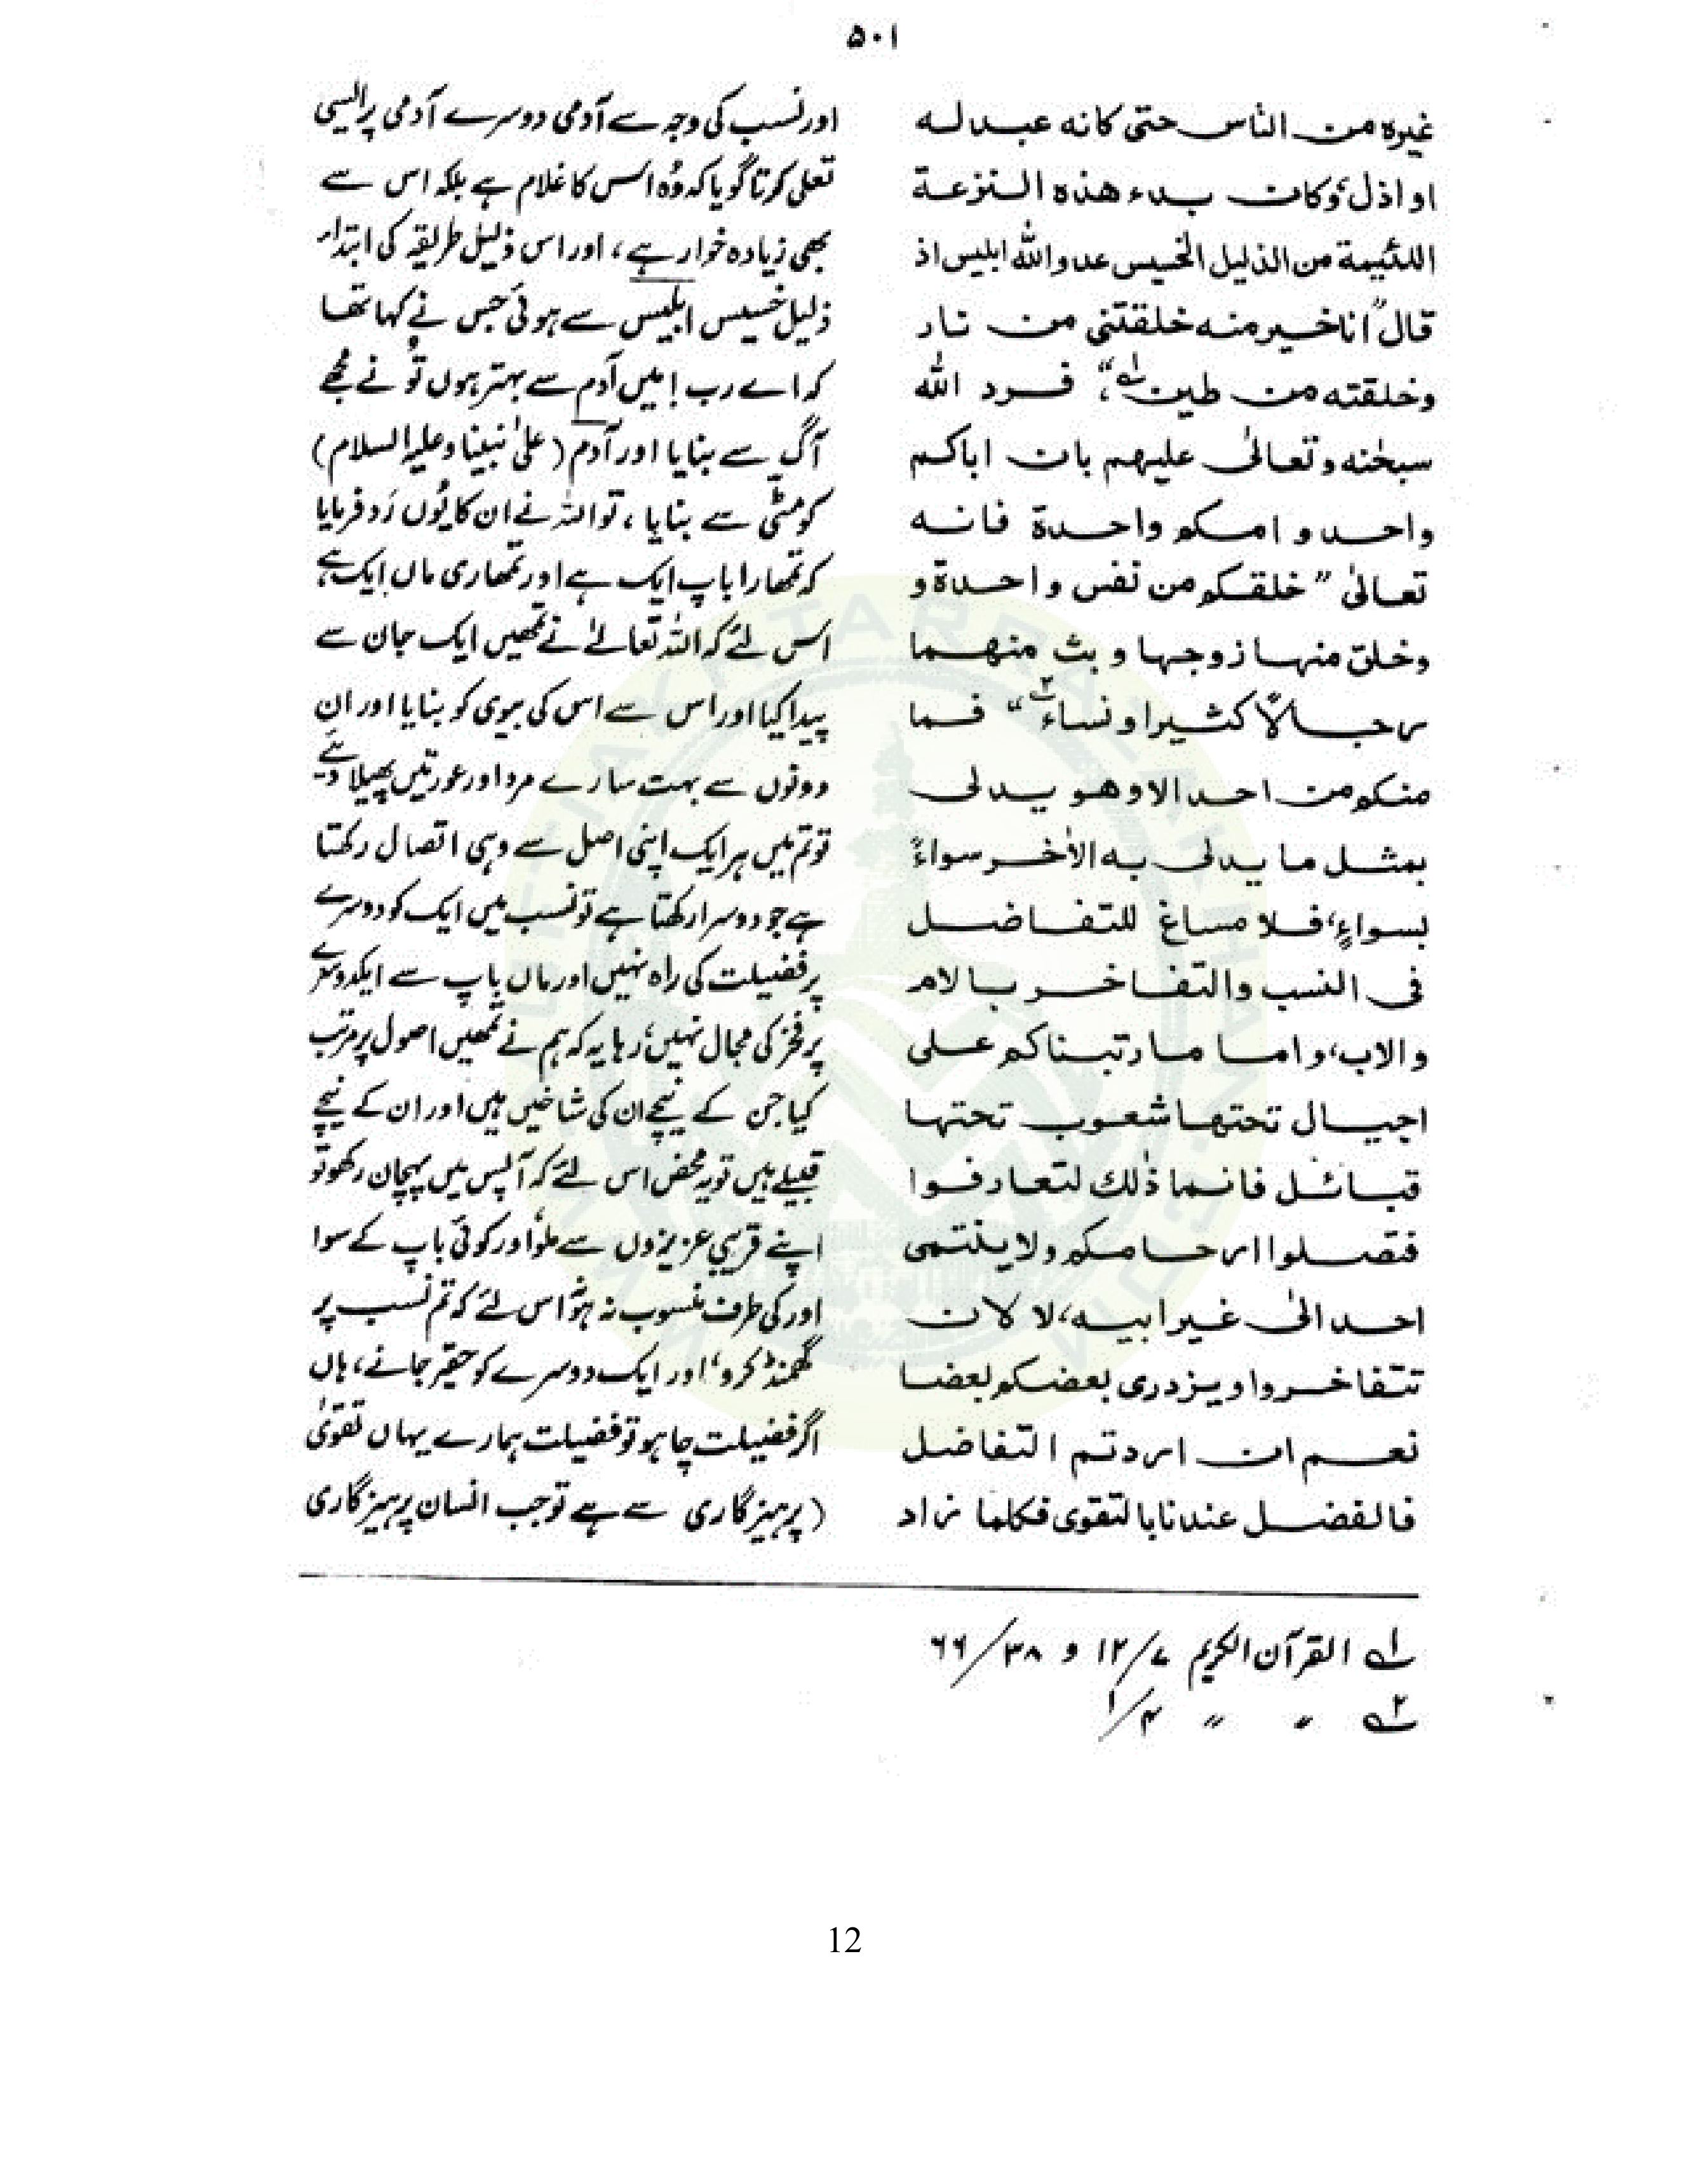 ۵۰۱
غیرہ من الناس حتی کانه عبد له
او اذل، وکان بدء ھذہ النزعة
اللئیمة من الذلیل الخسیس عدو اللہ ابلیس اذ
قال "انا خیر منه خلقتنی من نار
وخلقته من طین"۱؎، فرد اللہ
سبحٰنه وتعالیٰ علیھم بان اباکم
واحد و امکم واحدة فانه
تعالیٰ "خلقکم من نفس واحدة و
وخلق منھا زوجھا وبث منھما
رجالاً کثیرا ونساء"۲؎ فما
منکم من احد الا وھو یدلی
بمثل ما یدلی به الاٰخر سواءً
بسواءٍ، فلا مساغ للتفاضل
فی النسب والتفاخر بالام
والاب، واما ما رتبناکم علی
اجیال تحتھا شعوب تحتھا
قبائل فانما ذٰلك لتعارفوا
فتصلوا ارحامکم ولا ینتمی
احد الیٰ غیر ابیه، لا لان
تتفاخروا ویزدری بعضکم بعضا
نعم ان اردتم التفاضل
فالفضل عندنا بالتقوی فکلما زاد
اور نسب کی وجہ سے آدمی دوسرے آدمی پر ایسی
تعلی کرتا گویا کہ وُہ اس کا غلام ہے بلکہ اس سے
بھی زیادہ خوار ہے، اور اس ذلیل طریقہ کی ابتداء
ذلیل خسیس ابلیس سے ہوئی جس نے کہا تھا
کہ اے رب! میں آدم سے بہتر ہوں تُو نے مجھے
آگ سے بنایا اور آدم (علیٰ نبینا وعلیہ السلام)
کو مٹی سے بنایا، تو اللہ نے ان کا یُوں رَد فرمایا
کہ تمھارا باپ ایک ہے اور تمھاری ماں ایک ہے
اس لئے کہ اللہ تعالےٰ نے تمھیں ایک جان سے
پیدا کیا اور اس سے اس کی بیوی کو بنایا اور ان
دونوں سے بہت سارے مرد اور عورتیں پھیلا دئے
تو تم میں ہر ایک اپنی اصل سے وہی اتصال رکھتا
ہے جو دوسرا رکھتا ہے تو نسب میں ایک کو دوسرے
پر فضیلت کی راہ نہیں اور ماں باپ سے ایکدوسرے
پر فخر کی مجال نہیں، رہا یہ کہ ہم نے تمھیں اصول پر مرتب
کیا جن کے نیچے ان کی شاخیں ہیں اور ان کے نیچے
قبیلے ہیں تو یہ محض اس لئے کہ آپس میں پہچان رکھو تو
اپنے قریبی عزیزوں سے ملو، اور کوئی باپ کے سوا
اور کی طرف منسوب نہ ہو، اس لئے کہ تم نسب پر
گھمنڈ کرو، اور ایک دوسرے کو حقیر جانے، ہاں
اگر فضیلت چاہو تو فضیلت ہمارے یہاں تقویٰ
(پرہیزگاری سے ہے تو جب انسان پرہیزگاری
۱؎ القرآن الکریم ۷/۱۲ و ۳۸/۶۶
۲؎ " " ۴/۱
12